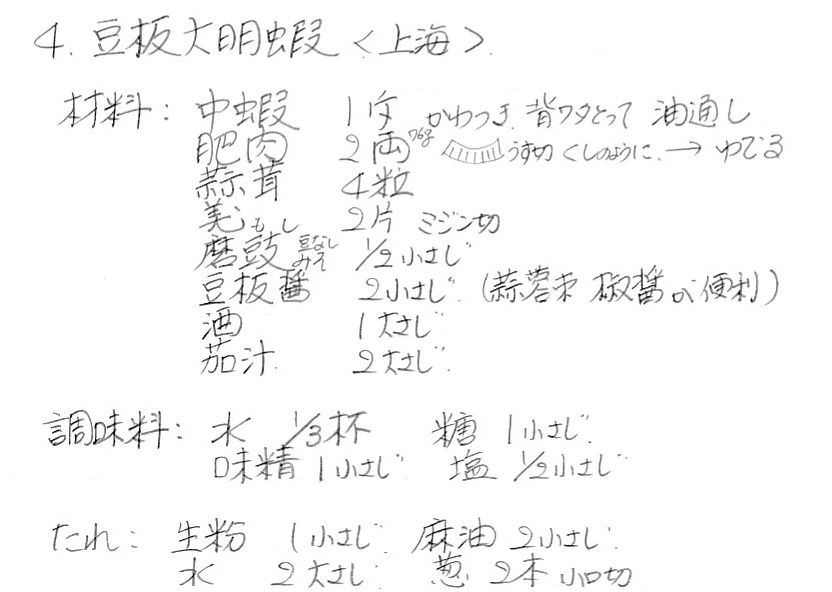 4. 豆板大明蝦〈上海〉
材料: 中蝦 1斤 かわつき 背ワタとって 油通し
肥肉 2両 76g うす切 くしのように → ゆでる
蒜茸 4粒
姜もし 2片 ミジン切
磨豉 豆なしみそ 1/2小さじ
豆板醤 2小さじ (蒜蓉 椒醤 便利)
酒 1大さじ
茄汁 2大さじ
調味料: 水 1/3杯 糖 1小さじ
味精 1小さじ 塩 1/2小さじ
たれ: 生粉 1小さじ 麻油 2小さじ
水 2大さじ 葱 2本 小口切